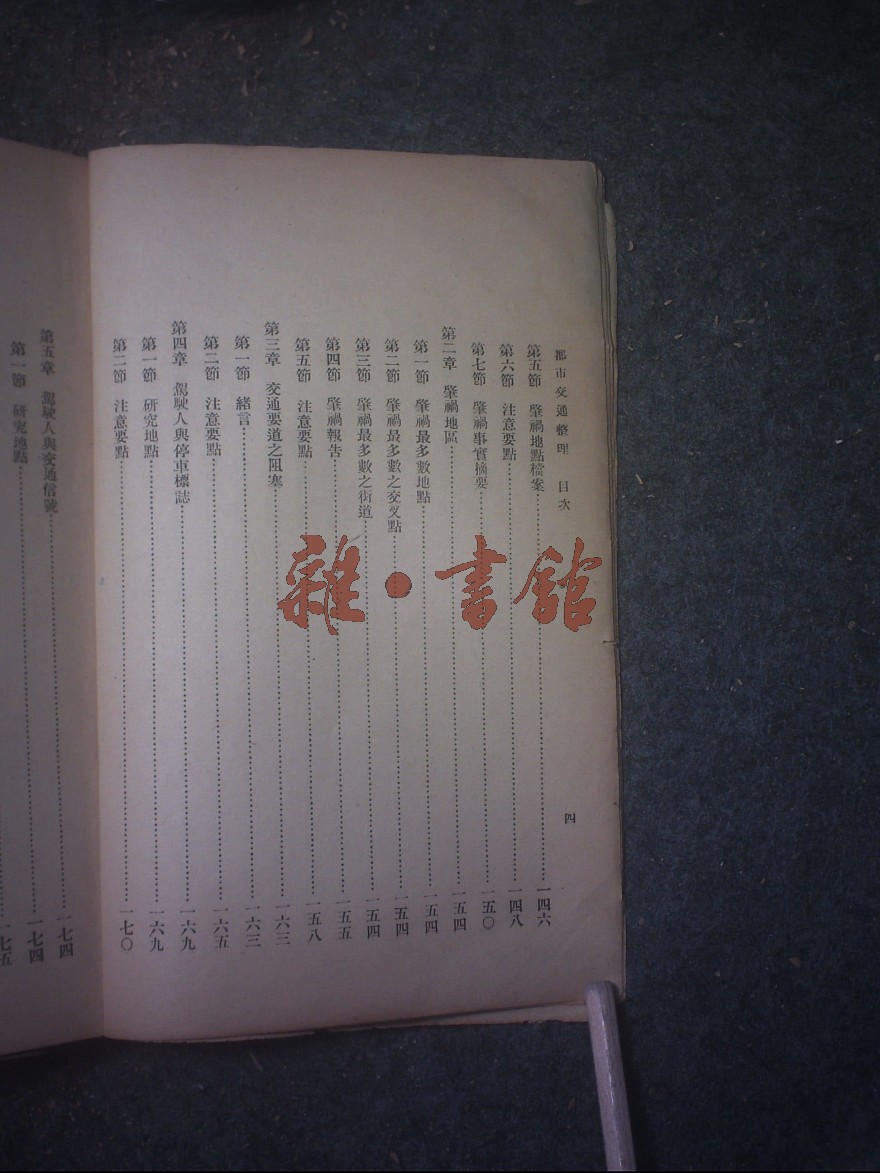 都市交通整理 目次
四
第五節 肇禍地點檔案 一四六
第六節 注意要點 一四八
第七節 肇禍事實摘要 一五〇
第二章 肇禍地區 一五四
第一節 肇禍最多數地點 一五四
第二節 肇禍最多數之交叉點 一五四
第三節 肇禍最多數之街道 一五四
第四節 肇禍報告 一五五
第五節 注意要點 一五八
第三章 交通要道之阻塞 一六三
第一節 緒言 一六三
第二節 注意要點 一六五
第四章 駕駛人與停車標誌 一六九
第一節 研究地點 一六九
第二節 注意要點 一七〇
第五章 駕駛人與交通信號 一七四
第一節 研究地點 一七四
一七五
雜·書館